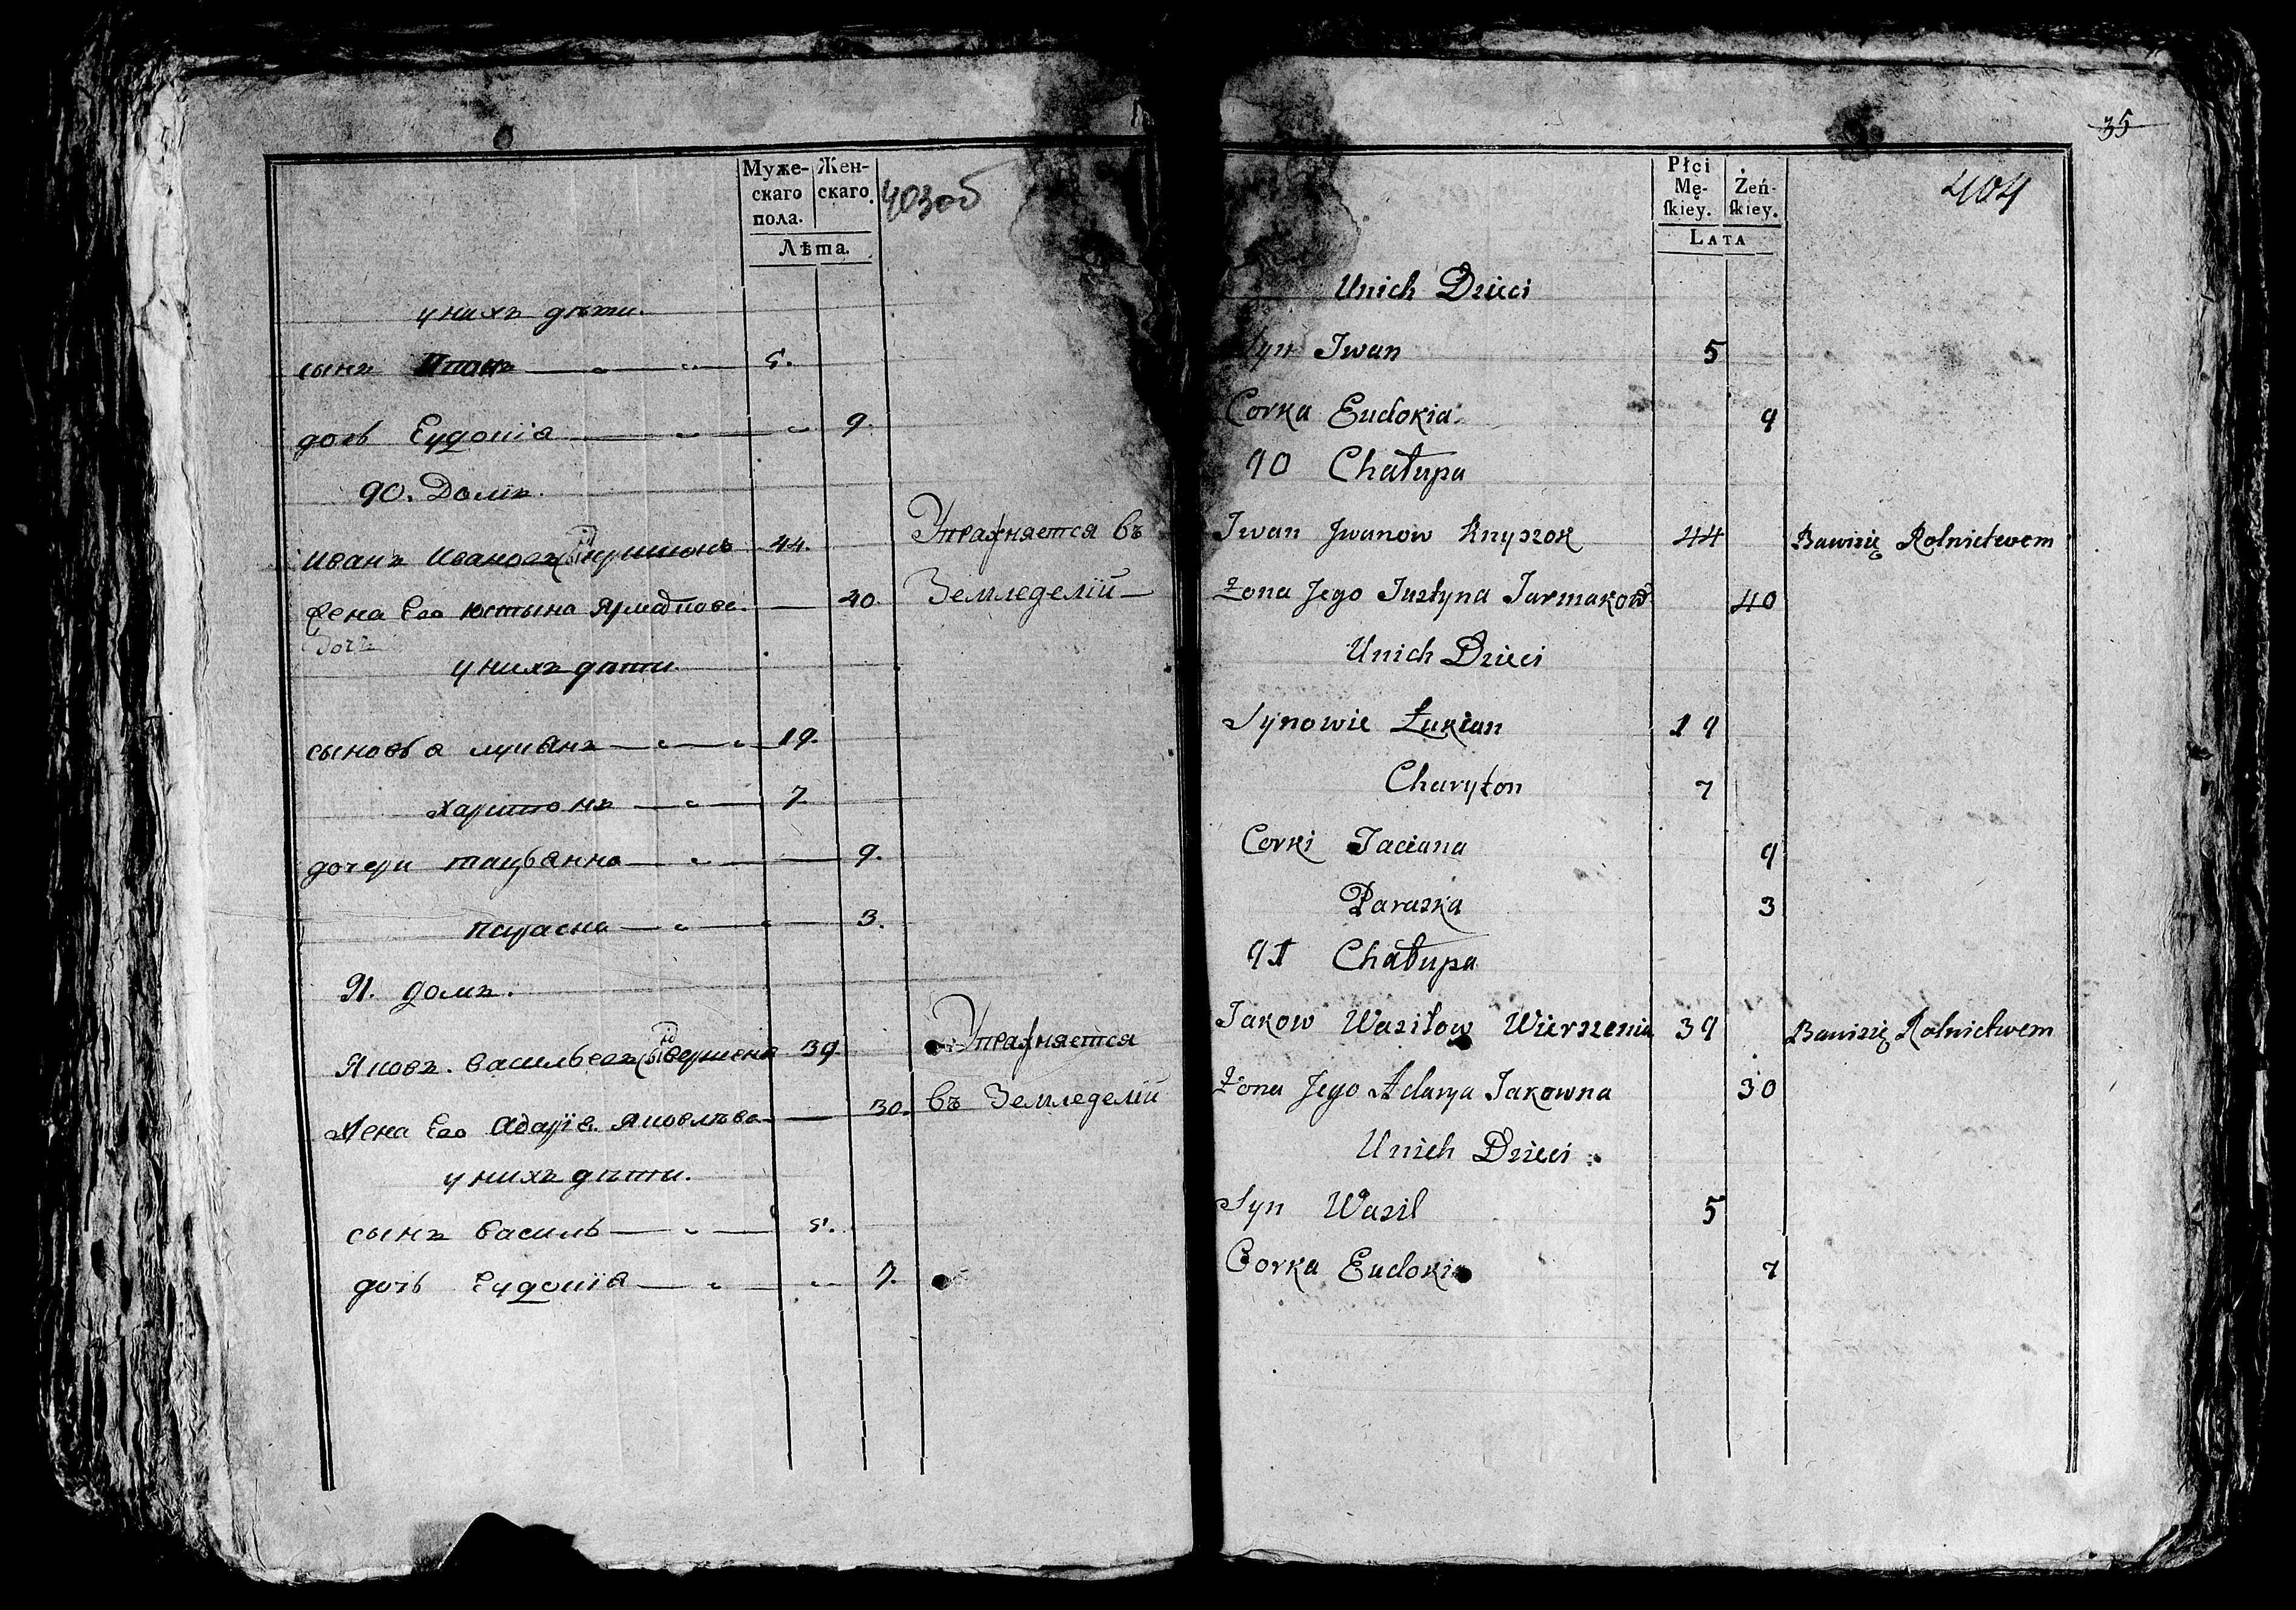 Муже-
скаго
пола.
Жен-
скаго.
Лѣта.
403об
у нихъ дѣти.
сынъ 5.
дочь Еудокіа 9.
90. Домъ.
Иванъ Ивановъ 44. Упражняется въ
жена Его Юстына Ярмакова 40. Земледелїи
дочь
у нихъ дѣти.
сыновья лукянъ 19.
харитонъ 7.
дочери тацьянна 9.
параска 3.
91. домъ.
Яковъ. васильевъ 39. Упражняется
Жена Его Адарїя Яковлева 30. въ Земледелїи
у нихъ дѣти.
сынъ василь 5.
дочь Еудокіа 7.
35
Płci
Mę-
skiey.
Żeń-
skiey.
LATA
404
Unich Dzieci
Syn Iwan 5
Corka Eudokia 9
90 Chałupa
Iwan Jwanow Knyszok 44 Bawisię Rolnictwem
Żona Jego Justyna Jarmakow 40
Unich Dzieci
Synowie Łukian 19
Charyton 7
Corki Taciana 9
Paraska 3
91 Chałupa
Jakow Wasilow Wierszenia 39 Bawisię Rolnictwem
Żona Jego Adarya Jakowna 30
Unich Dzieci
Syn Wasil 5
Corka Eudokia 7